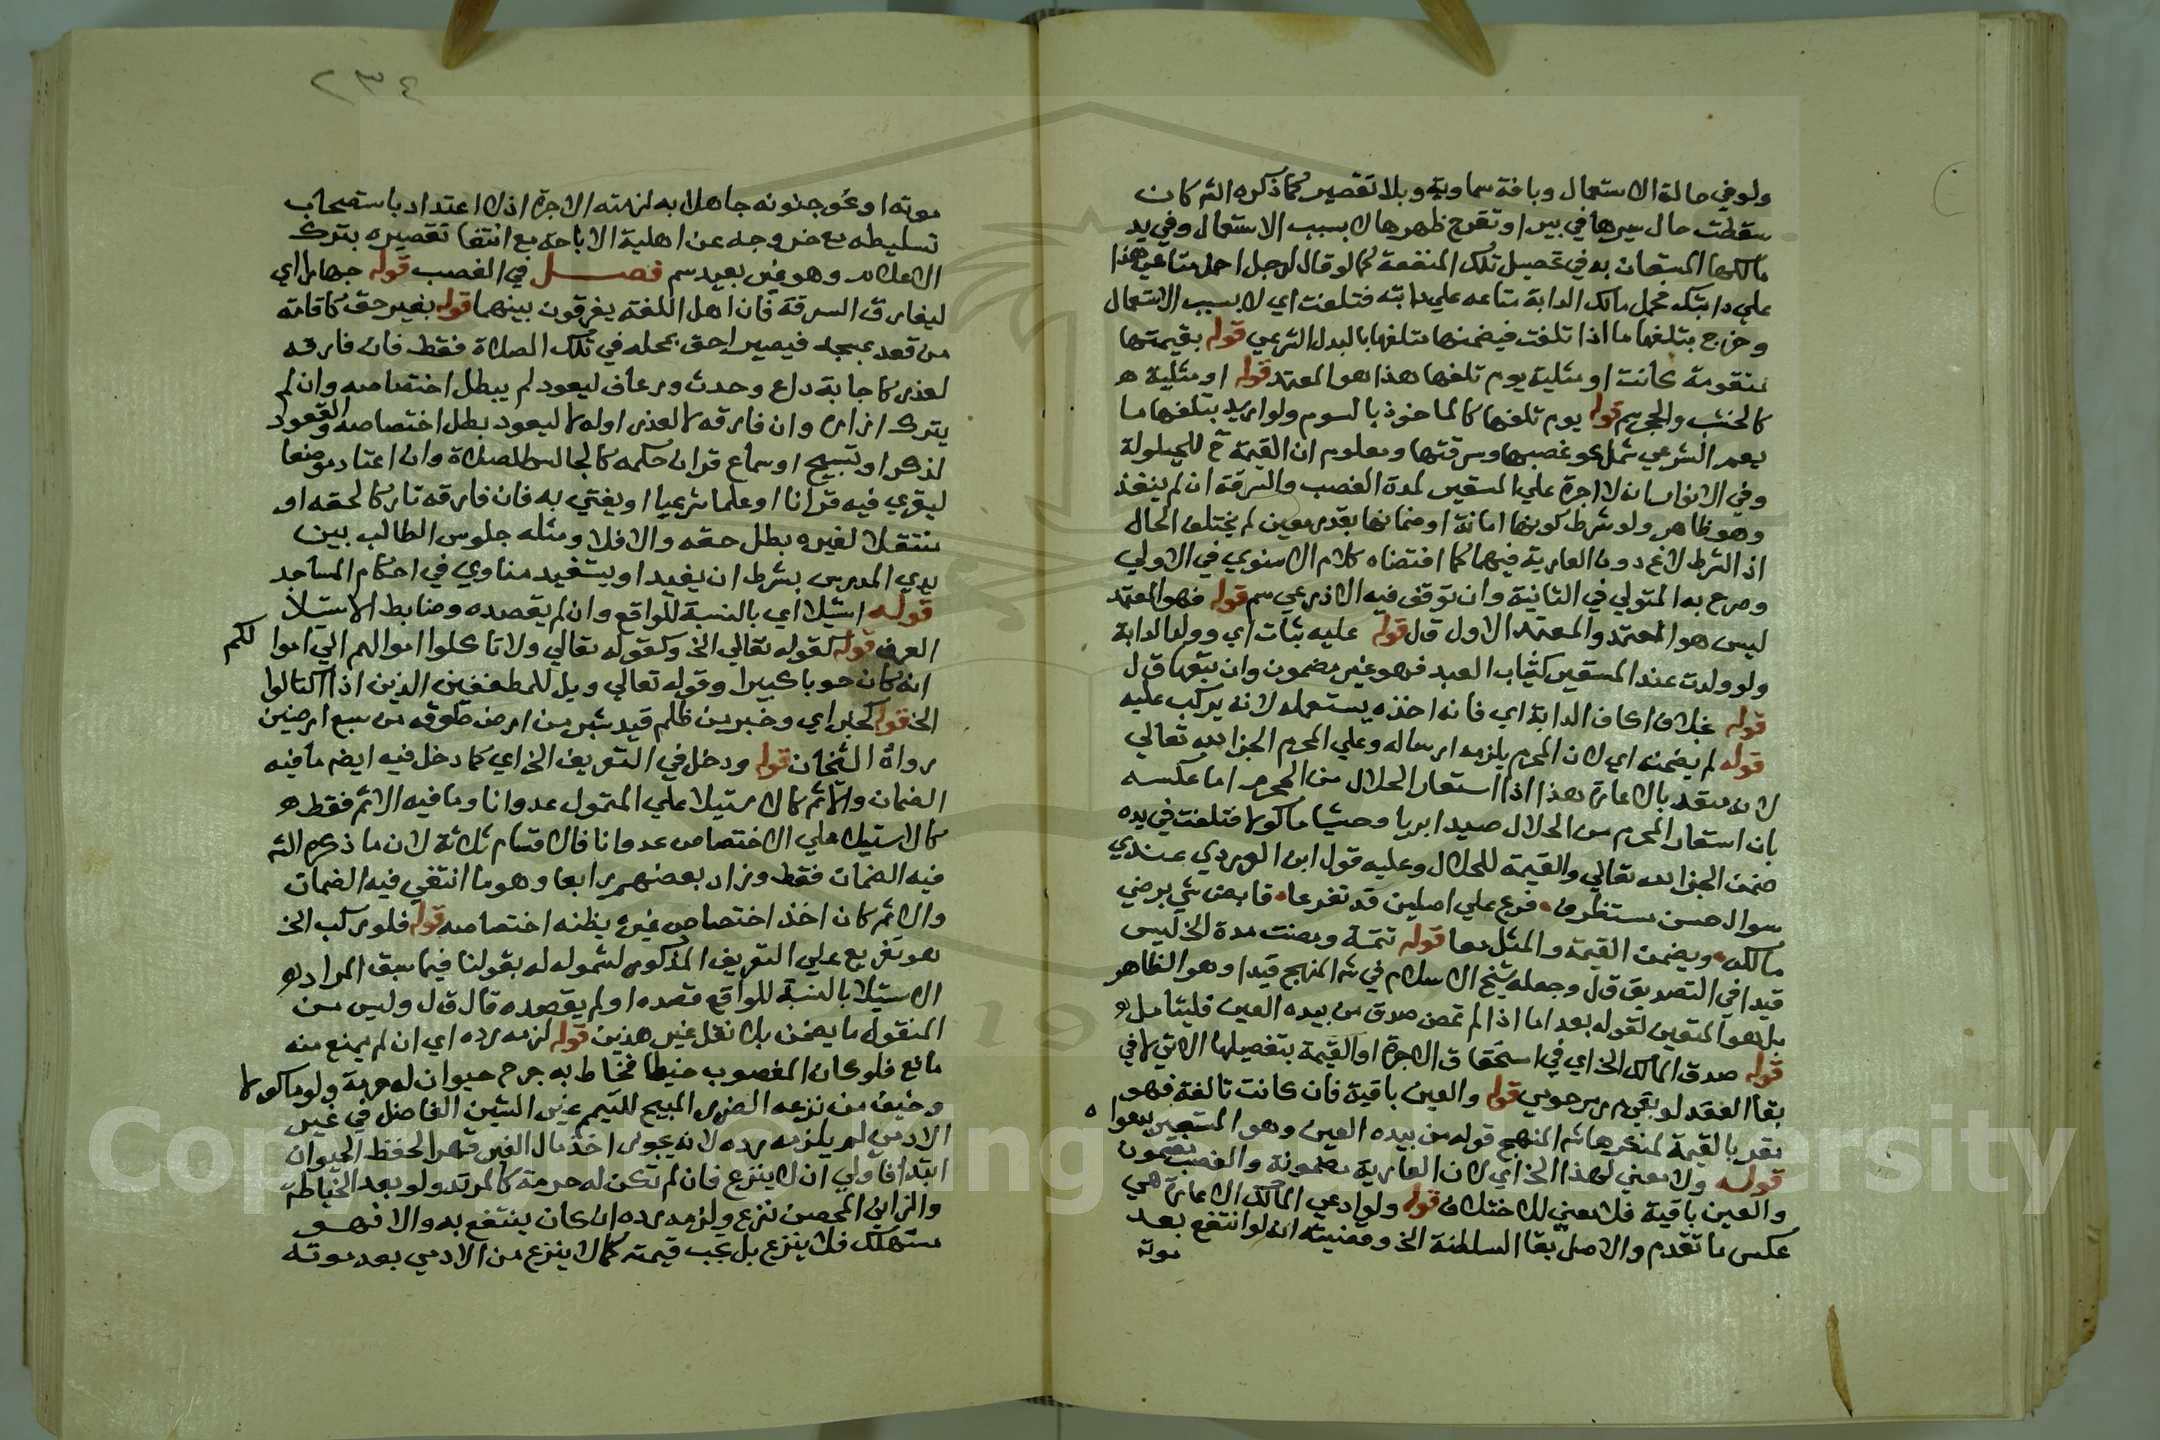 ولو في حالة الاستعمال وبافة سماوية وبلا تقصير كما ذكره الشه كان
سقطت حال سيرها في بير او تقرح ظهرها لا بسبب الاستعمال وفي يد
مالكها المستعان به في تحصيل تلك المنفعة كما لو قال لرجل احمل متاعي هذا
علي دابتك فحمل مالك الدابة متاعه علي دابته فتلفت اي لا بسبب الاستعمال
وخرج بتلفها ما اذا تلفت فيضمنها متلفها بالبدل الشرعي قوله بقيمتها
متقومة كانت او مثلية يوم تلفها هذا هو المعتمد قوله او مثلية هـ
كالخشب والحجر سم قوله يوم تلفها كالماخوذ بالسوم ولو اريد بتلفها ما
يعم الشرعي شمل نحو غصبها وسرقتها ومعلوم ان القيمة ح للحيلولة
وفي الانوار انه لا اجرة علي المستعير لمدة الغصب والسرقة ان لم ينفذ
وهو ظاهر ولو شرط كونها امانة او ضمانها بقدر معين لم يختلف الحال
اذ الشرط لاغ دون العارية فيهما كما اقتضاه كلام الاسنوي في الاولي
وصرح به المتولي في الثانية وان توقف فيه الاذرعي سم قوله فهو المعتمد
ليس هو المعتمد والمعتمد الاول قل قوله عليه ثياب اي وولد الدابة
ولو ولدت عند المستعير كثياب العبد فهو غير مضمون وان تبعها قل
قوله بخلاف اكاف الدابة اي فانه اخذه يستعمله لانه يركب عليه
قوله لم يضمنه اي لان المحرم يلزمه ارساله وعلي المحرم الجزا لله تعالي
لانه متعد بالاعارة هذا اذا استعار الحلال من المحرم اما عكسه
بان استعار المحرم من الحلال صيدا بريا وحشيا ماكولا فتلفت في يده
ضمن الجزا لله تعالي والقيمة للحلال وعليه قول ابن الوردي عندي
سوال حسن مستظرف فرع علي اصلين قد تفرعا قابض شي برضي
مالكه ويضمن القيمة والمثل معا قوله تتمة ومضت مدة الخ ليس
قيدا في التصديق قل وجعله شيخ الاسلام في شه المنهج قيدا وهو الظاهر
بل هو المتعين لقوله بعد اما اذا لم تمض صدق من بيده العين فليتامل
قوله صدق المالك الخ اي في استحقاق الاجرة او القيمة بتفصيلها الاتي لا في
بقا العقد لو بقي مر مرحومي قوله والعين باقية فان كانت تالفة فهو
مقر بالقيمة لمنكرها شه المنهج قوله من بيده العين وهو المستعير
قوله ولا معني لهذا الخ اي لان العارية مضمونة والغصب مضمون
والعين باقية فلا معني للاختلاف قوله ولو ادعي المالك الاعارة هي
عكس ما تقدم والاصل بقا السلطنة الخ وقضيته انه لو انتفع بعد
موته
٢٣٤
موته او نحو جنونه جاهلا به لزمته الاجرة اذ لا اعتداد باستصحاب
تسليطه مع خروجه عن اهلية الاباحة مع انتفا تقصيره بترك
الاعلام وهو غير بعيد سم فصل في الغصب قوله جهارا اي
ليفارق السرقة فان اهل اللغة يفرقون بينهما قوله بغير حق كاقامة
من قعد بمسجد فيصير احق بمحله في تلك الصلاة فقط فان فارقه
لعذر كاجابة داع وحدث ورعاف ليعود لم يبطل اختصاصه وان لم
يترك ازاره وان فارقه لا لعذر او له لا ليعود بطل اختصاصه والقعود
لذكر او تسبيح او سماع قران حكمه كالجالس للصلاة وان اعتاد موضعا
ليقري فيه قرانا او علما شرعيا او يفتي به فان فارقه تاركا لحقه او
منتقلا لغيره بطل حقه والا فلا ومثله جلوس الطالب بين
يدي المدرس بشرط ان يفيد او يستفيد مناوي في احكام المساجد
قوله استيلا اي بالنسبة للواقع وان لم يقصده وضابط الاستيلا
العرف قوله كقوله تعالي الخ وكقوله تعالي ولا تاكلوا اموالهم الي اموالكم
انه كان حوبا كبيرا وقوله تعالي ويل للمطففين الذين اذا اكتالوا
الخ قوله كخبر اي وخبر من ظلم قيد شبر من ارض طوقه من سبع ارضين
رواه الشيخان قوله ودخل في التعريف الخ اي كما دخل فيه ايضا ما فيه
الضمان والاثم كالاستيلا علي المتمول عدوانا وما فيه الاثم فقط هـ
كالاستيلا علي الاختصاص عدوانا فالاقسام ثلاثة لان ما ذكره الشه
فيه الضمان فقط وزاد بعضهم رابعا وهو ما انتفي فيه الضمان
والاثم كان اخذ اختصاص غيره يظنه اختصاصه قوله فلو ركب الخ
هو تفريع علي التعريف المذكور لشموله له بقولنا فيما سبق المراد
الاستيلا بالنسبة للواقع قصده او لم يقصده قال قل وليس من
المنقول ما يضمن بلا نقل غير هذين قوله لزمه رده اي ان لم يمنع منه
مانع فلو كان المغصوب خيطا فخاط به جرح حيوان له حرمة ولو ماكولا
وخيف من نزعه الضرر المبيح للتيمم غير الشين الفاحش في غير
الادمي لم يلزمه رده لانه يجوز اخذ مال الغير قهرا لحفظ الحيوان
ابتدا فاولي ان لا ينزع فان لم تكن له حرمة كالمرتد ولو بعد الخياطة
والزاني المحصن نزع ويلزمه رده ان كان ينتفع به والا فهو
مستهلك فلا ينزع بل تجب قيمته كما لا ينزع من الادمي بعد موته
Copyright © King Saud University